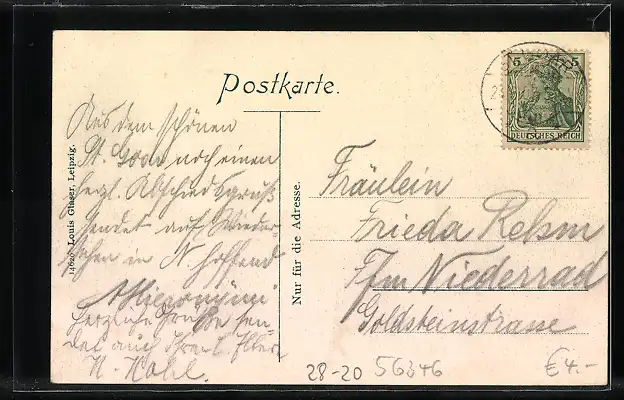 Postkarte.
Aus dem schönen
St. Goar noch einen
herzl. Abschiedsgruß
sendet auf Wieder-
sehen in N hoffend
Hieronymi
Herzliche Grüße sen-
det auch Ihre
H. Kohl.
14620 Louis Glaser, Leipzig.
Nur für die Adresse.
5 5
DEUTSCHES REICH
Fräulein
Frieda Rehm
Ffm Niederrad
Goldsteinstrasse
28-20 56346
€ 4.-